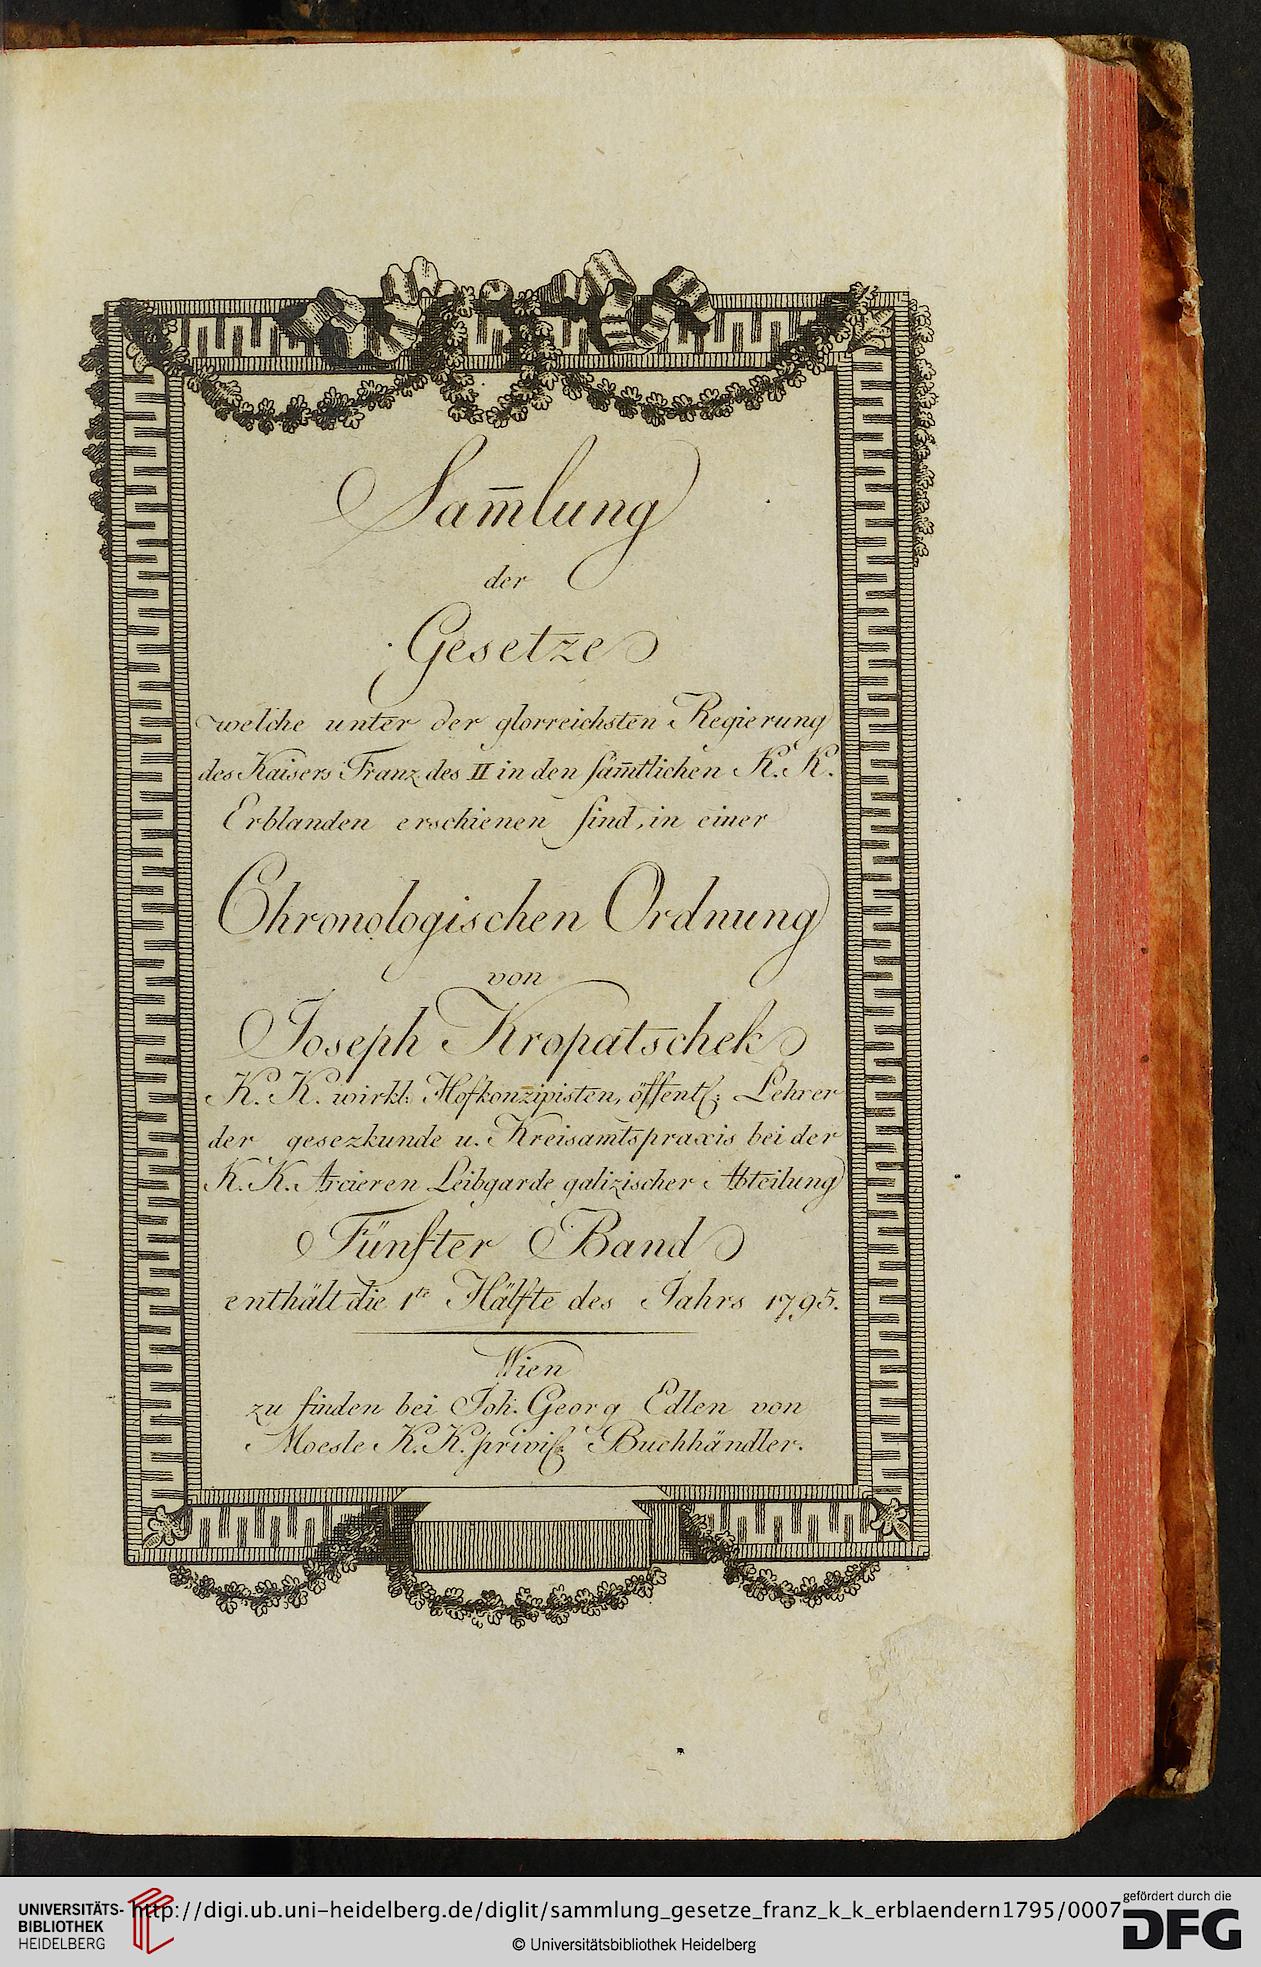 Sam̅lung
der
Gesetze
welche unter der glorreichsten Regierung
des Kaisers Franz des II in den säm̅tlichen K. K.
Erblanden erschienen sind, in einer
Chronologischen Ordnung
von
Joseph Kropatschek
K. K. wirkl: Hofkonzipisten, öffentl: Lehrer
der gesezkunde u. Kreisamtspraxis bei der
K. K. Arcieren Leibgarde galizischer Abteilung
Fünfter Band
enthält die 1te Hälfte des Jahrs 1795.
Wien
zu finden bei Joh. Georg Edlen von
Moesle K. K. privil: Buchhändler.
UNIVERSITÄTS-
BIBLIOTHEK
HEIDELBERG
http://digi.ub.uni-heidelberg.de/diglit/sammlung_gesetze_franz_k_k_erblaendern1795/0007
© Universitätsbibliothek Heidelberg
gefördert durch die
DFG